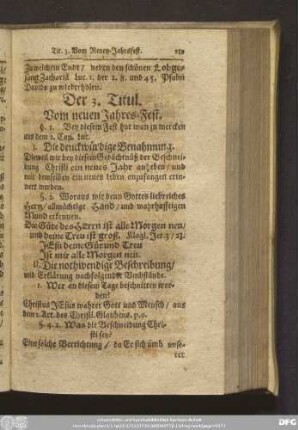 Tit. 3. Vom Neuen-Jahrsfest.
Zu welchem Ende / neben den schönen Lobge-
sang Zachariä Luc. 1. der 2. 8. und 45. Psalm
Davids zu wiederholen.
Der 3. Titul.
Vom neuen Jahres-Fest.
§. 1. Bey diesem Fest hat man zu mercken
aus dem 2. Cap. Luc.
I. Die denckwürdige Benahmung.
Dieweil wir bey diesem Gedächtnüß der Beschnei-
dung Christi ein neues Jahr anheben / und
mit demselben ein neues Leben anzufangen erin-
nert werden.
§. 2. Woraus wir denn Gottes liebreiches
Hertz / allmächtige Hand / und wahrhafftigen
Mund erkennen.
Die Güte des Herrn ist alle Morgen neu,
und deine Treu ist groß. Klagl. Jer. 3 / 23.
JEsu deine Güt und Treu
Ist mir alle Morgen neu.
II. Die nothwendige Beschreibung /
mit Erklärung nachfolgender Umbstände.
1. Wer an diesem Tage beschnitten wor-
den?
Christus JEsus wahrer Gott und Mensch / aus
dem 2. Art. des Christl. Glaubens. p. 9.
§. 4. 2. Was die Beschneidung Chri-
sti sey?
Eine solche Verrichtung / da Er sich umb unse-
rer